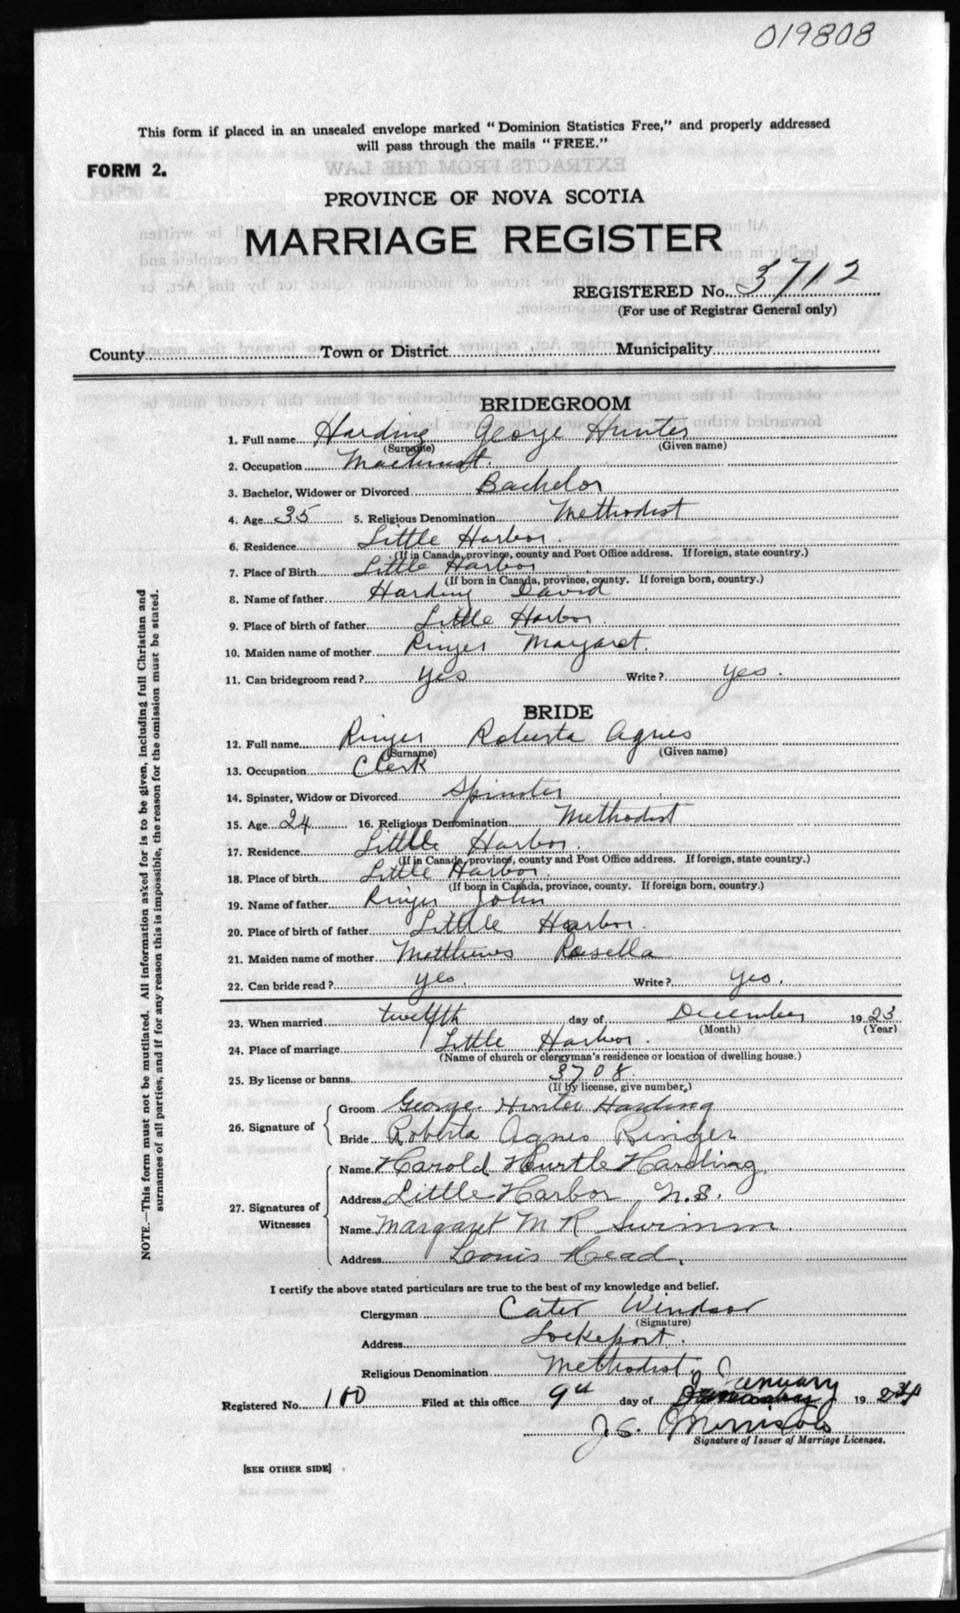 019808
This form if placed in an unsealed envelope marked "Dominion Statistics Free," and properly addressed
will pass through the mails "FREE."
FORM 2.
PROVINCE OF NOVA SCOTIA
MARRIAGE REGISTER
REGISTERED No. 3712
(For use of Registrar General only)
County Town or District Municipality
BRIDEGROOM
1. Full name Harding George Hunter
(Surname) (Given name)
2. Occupation Machinist.
3. Bachelor, Widower or Divorced Bachelor
4. Age 35 5. Religious Denomination Methodist
6. Residence Little Harbor.
(If in Canada, province, county and Post Office address. If foreign, state country.)
7. Place of Birth Little Harbor
(If born in Canada, province, county. If foreign born, country.)
8. Name of father Harding David
9. Place of birth of father Little Harbor.
10. Maiden name of mother Ringer Margaret.
11. Can bridegroom read? Yes Write? Yes.
BRIDE
12. Full name Ringer Roberta Agnes
(Surname) (Given name)
13. Occupation Clerk
14. Spinster, Widow or Divorced Spinster
15. Age 24 16. Religious Denomination Methodist
17. Residence Little Harbor.
(If in Canada, province, county and Post Office address. If foreign, state country.)
18. Place of birth Little Harbor.
(If born in Canada, province, county. If foreign born, country.)
19. Name of father Ringer John
20. Place of birth of father Little Harbor.
21. Maiden name of mother Matthews Rosella
22. Can bride read? yes. Write? yes.
23. When married twelfth day of December 1923
(Month) (Year)
24. Place of marriage Little Harbor.
(Name of church or clergyman's residence or location of dwelling house.)
25. By license or banns 3708.
(If by license, give number.)
26. Signature of
Groom George Hunter Harding
Bride Roberta Agnes Ringer
27. Signatures of Witnesses
Name Harold Murtle Harding
Address Little Harbor, N.S.
Name Margaret M R Swimm.
Address Louis Head.
I certify the above stated particulars are true to the best of my knowledge and belief.
Clergyman Cater Windsor
(Signature)
Address Lockeport.
Religious Denomination Methodist
Registered No. 100 Filed at this office 9th day of January 1924
J.C. Morrison
Signature of Issuer of Marriage Licenses.
[SEE OTHER SIDE]
NOTE.—This form must not be mutilated. All information asked for is to be given, including full Christian and
surnames of all parties, and if for any reason this is impossible, the reason for the omission must be stated.